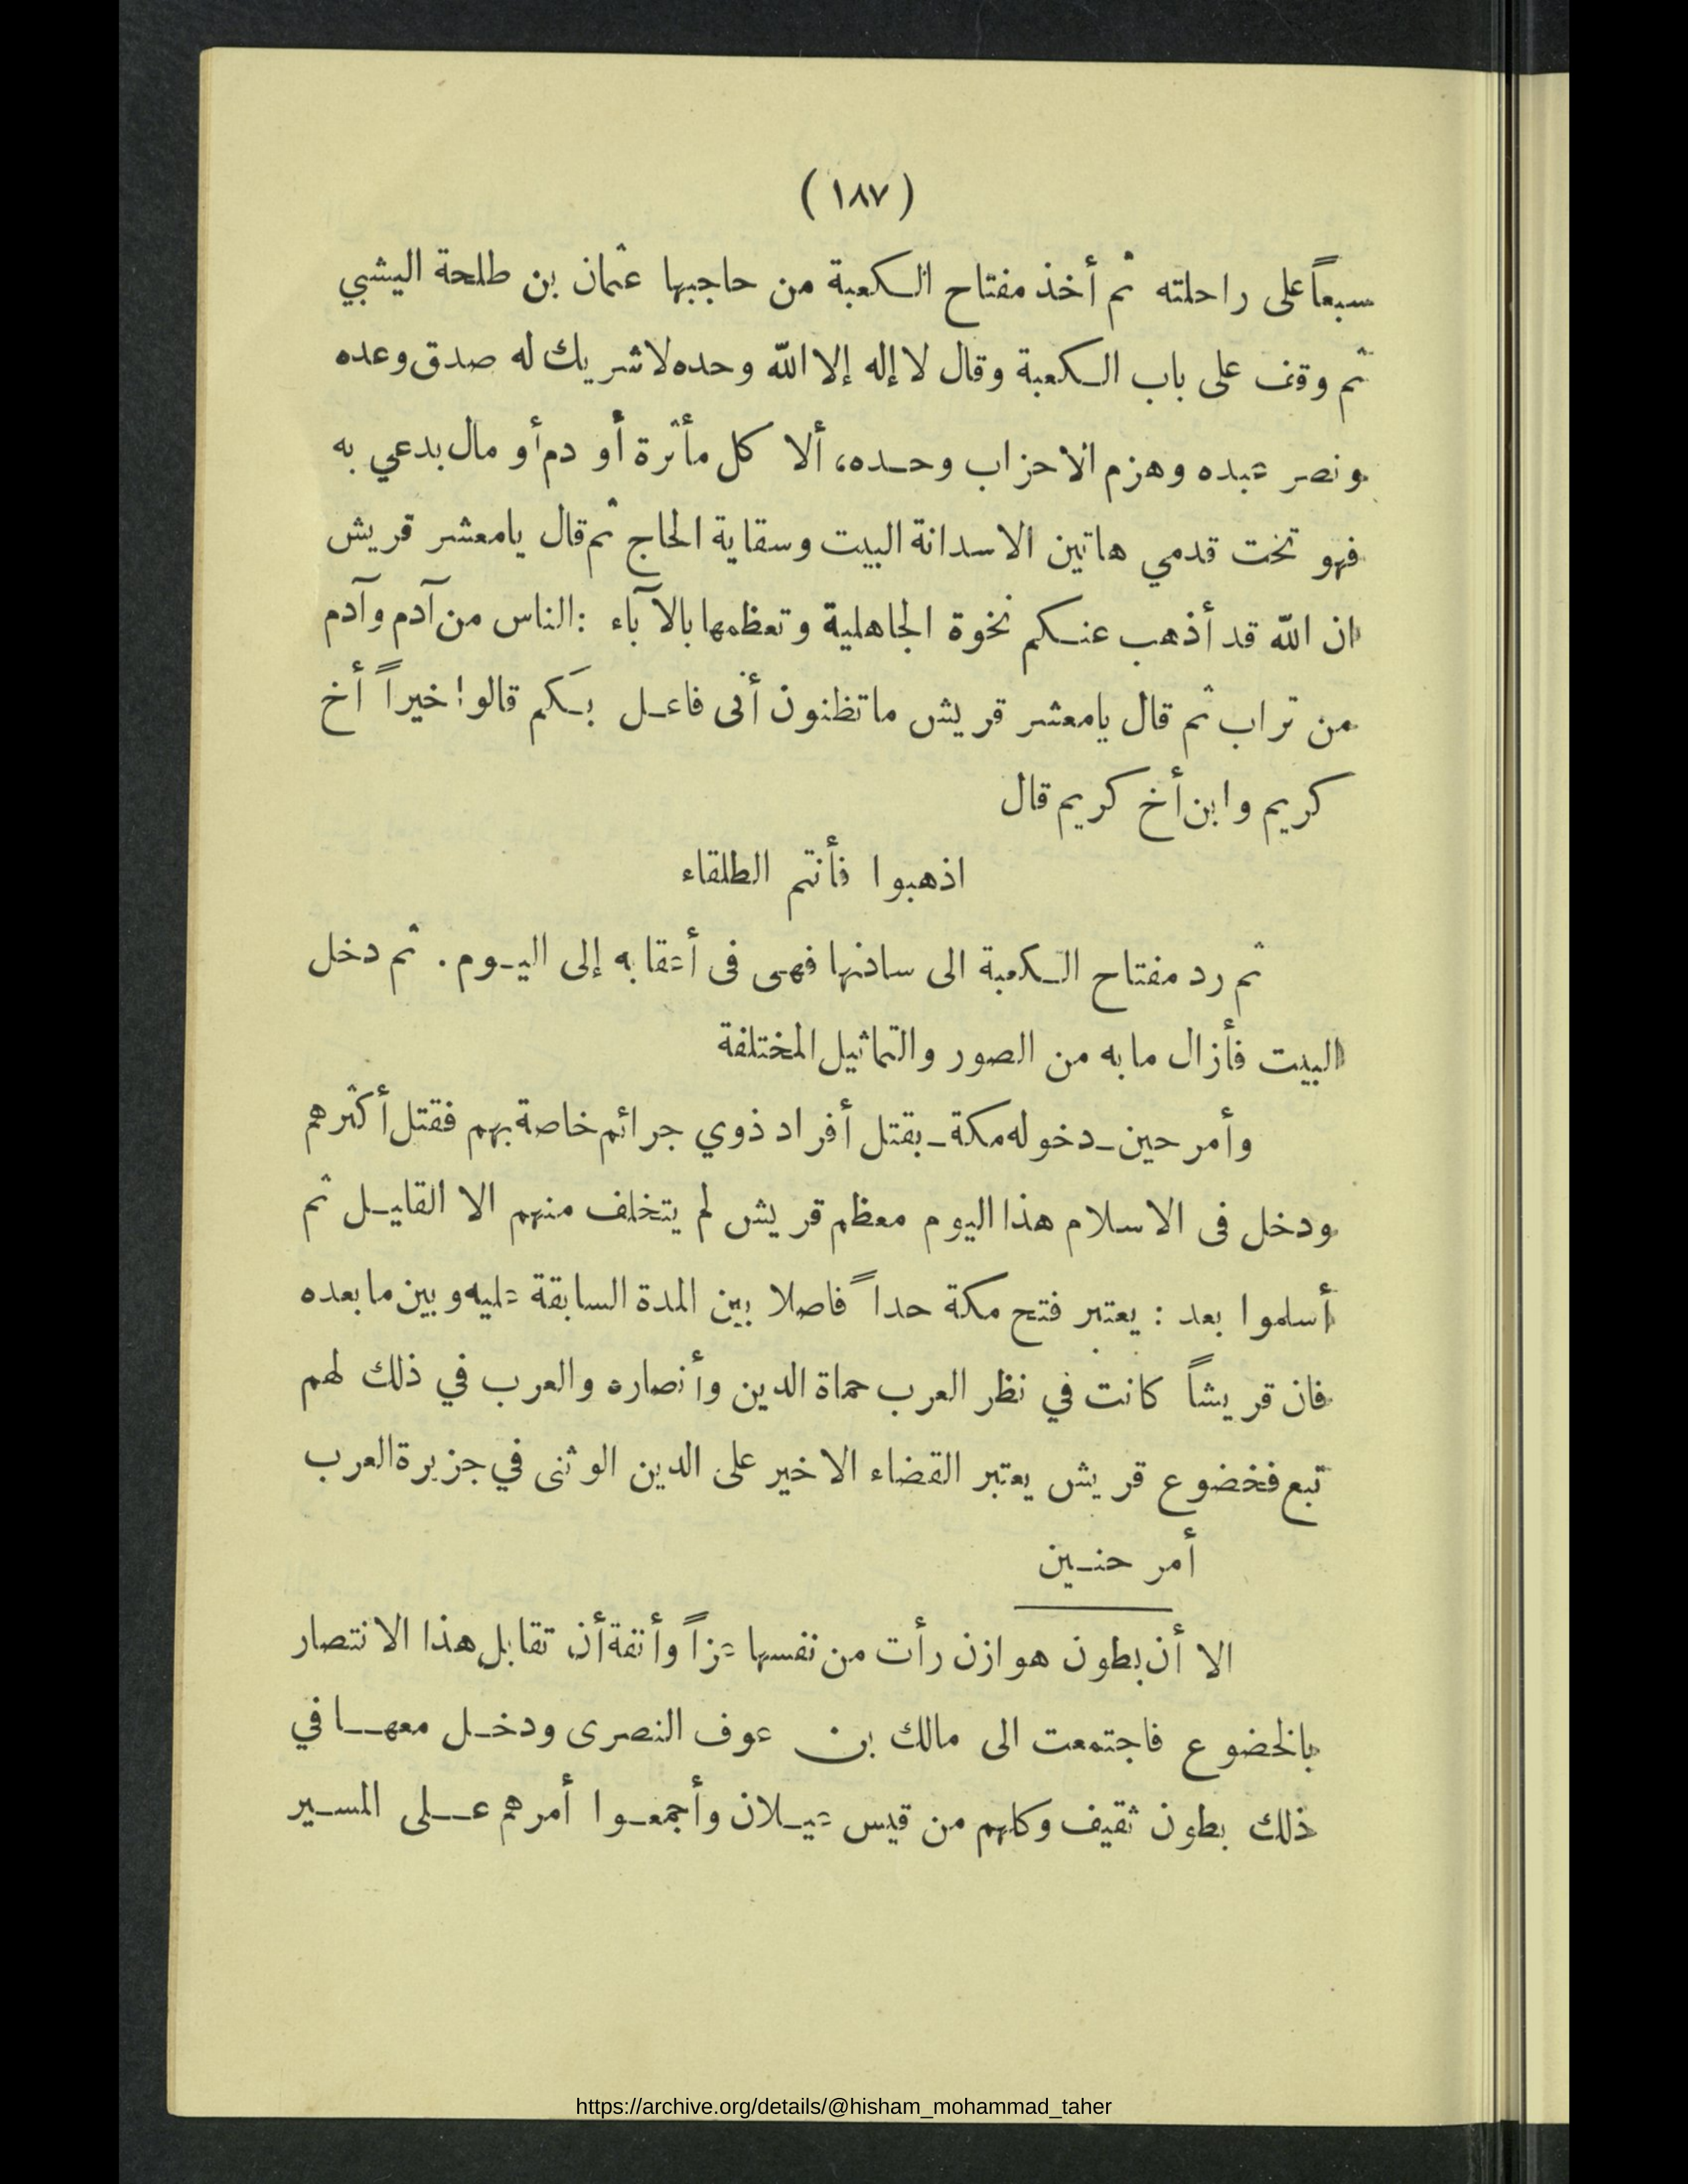 ( ١٨٧ )
سبعاً على راحلته ثم أخذ مفتاح الكعبة من حاجبها عثمان بن طلحة اليشبي
ثم وقف على باب الكعبة وقال لا إله إلا الله وحده لا شريك له صدق وعده
ونصر عبده وهزم الاحزاب وحده، ألا كل مأثرة أو دم أو مال بدعي به
فهو تحت قدمي هاتين الا سدانة البيت وسقاية الحاج ثم قال يا معشر قريش
ان الله قد أذهب عنكم نخوة الجاهلية وتعظمها بالآباء : الناس من آدم وآدم
من تراب ثم قال يا معشر قريش ما تظنون أنى فاعل بكم قالوا خيراً أخ
كريم وابن أخ كريم قال
اذهبوا فأنتم الطلقاء
ثم رد مفتاح الكعبة الى سادنها فهي فى أعقابه إلى اليوم . ثم دخل
البيت فأزال ما به من الصور والتماثيل المختلفة
وأمر حين ـ دخوله مكة ـ بقتل أفراد ذوي جرائم خاصة بهم فقتل أكثرهم
ودخل فى الاسلام هذا اليوم معظم قريش لم يتخلف منهم الا القليل ثم
أسلموا بعد : يعتبر فتح مكة حداً فاصلا بين المدة السابقة عليه وبين ما بعده
فان قريشاً كانت في نظر العرب حماة الدين وأنصاره والعرب في ذلك لهم
تبع فخضوع قريش يعتبر القضاء الاخير على الدين الوثنى في جزيرة العرب
أمر حنين
الا أن بطون هوازن رأت من نفسها عزاً وأنفة أن تقابل هذا الانتصار
بالخضوع فاجتمعت الى مالك بن عوف النصرى ودخل معها في
ذلك بطون ثقيف وكلهم من قيس عيلان وأجمعوا أمرهم على المسير
https://archive.org/details/@hisham_mohammad_taher